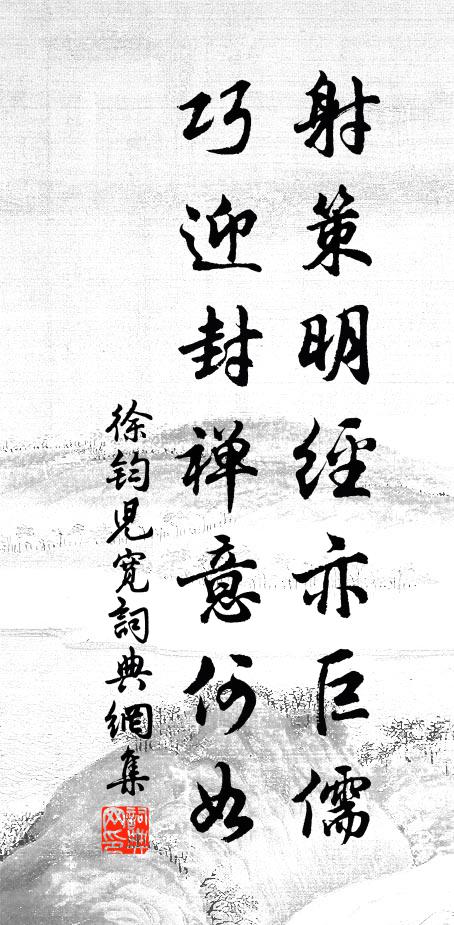 射策明經亦巨儒
巧迎封禅意何如
徐鈞兒寬詞典網集